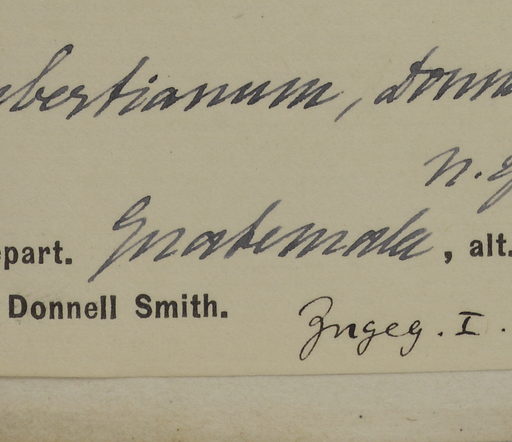 bertianum, Donn
n.
epart. Guatemala, alt.
Donnell Smith.
Ingeg. I.